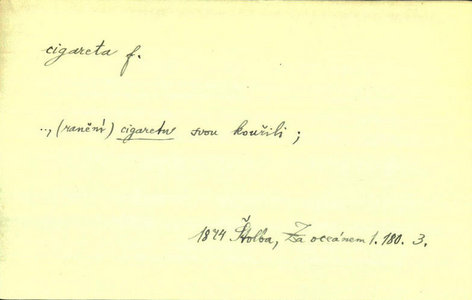 cigareta f.
.., (ranění) cigaretu svou kouřili ;
1874 Štolba, Za oceánem 1. 180. 3.